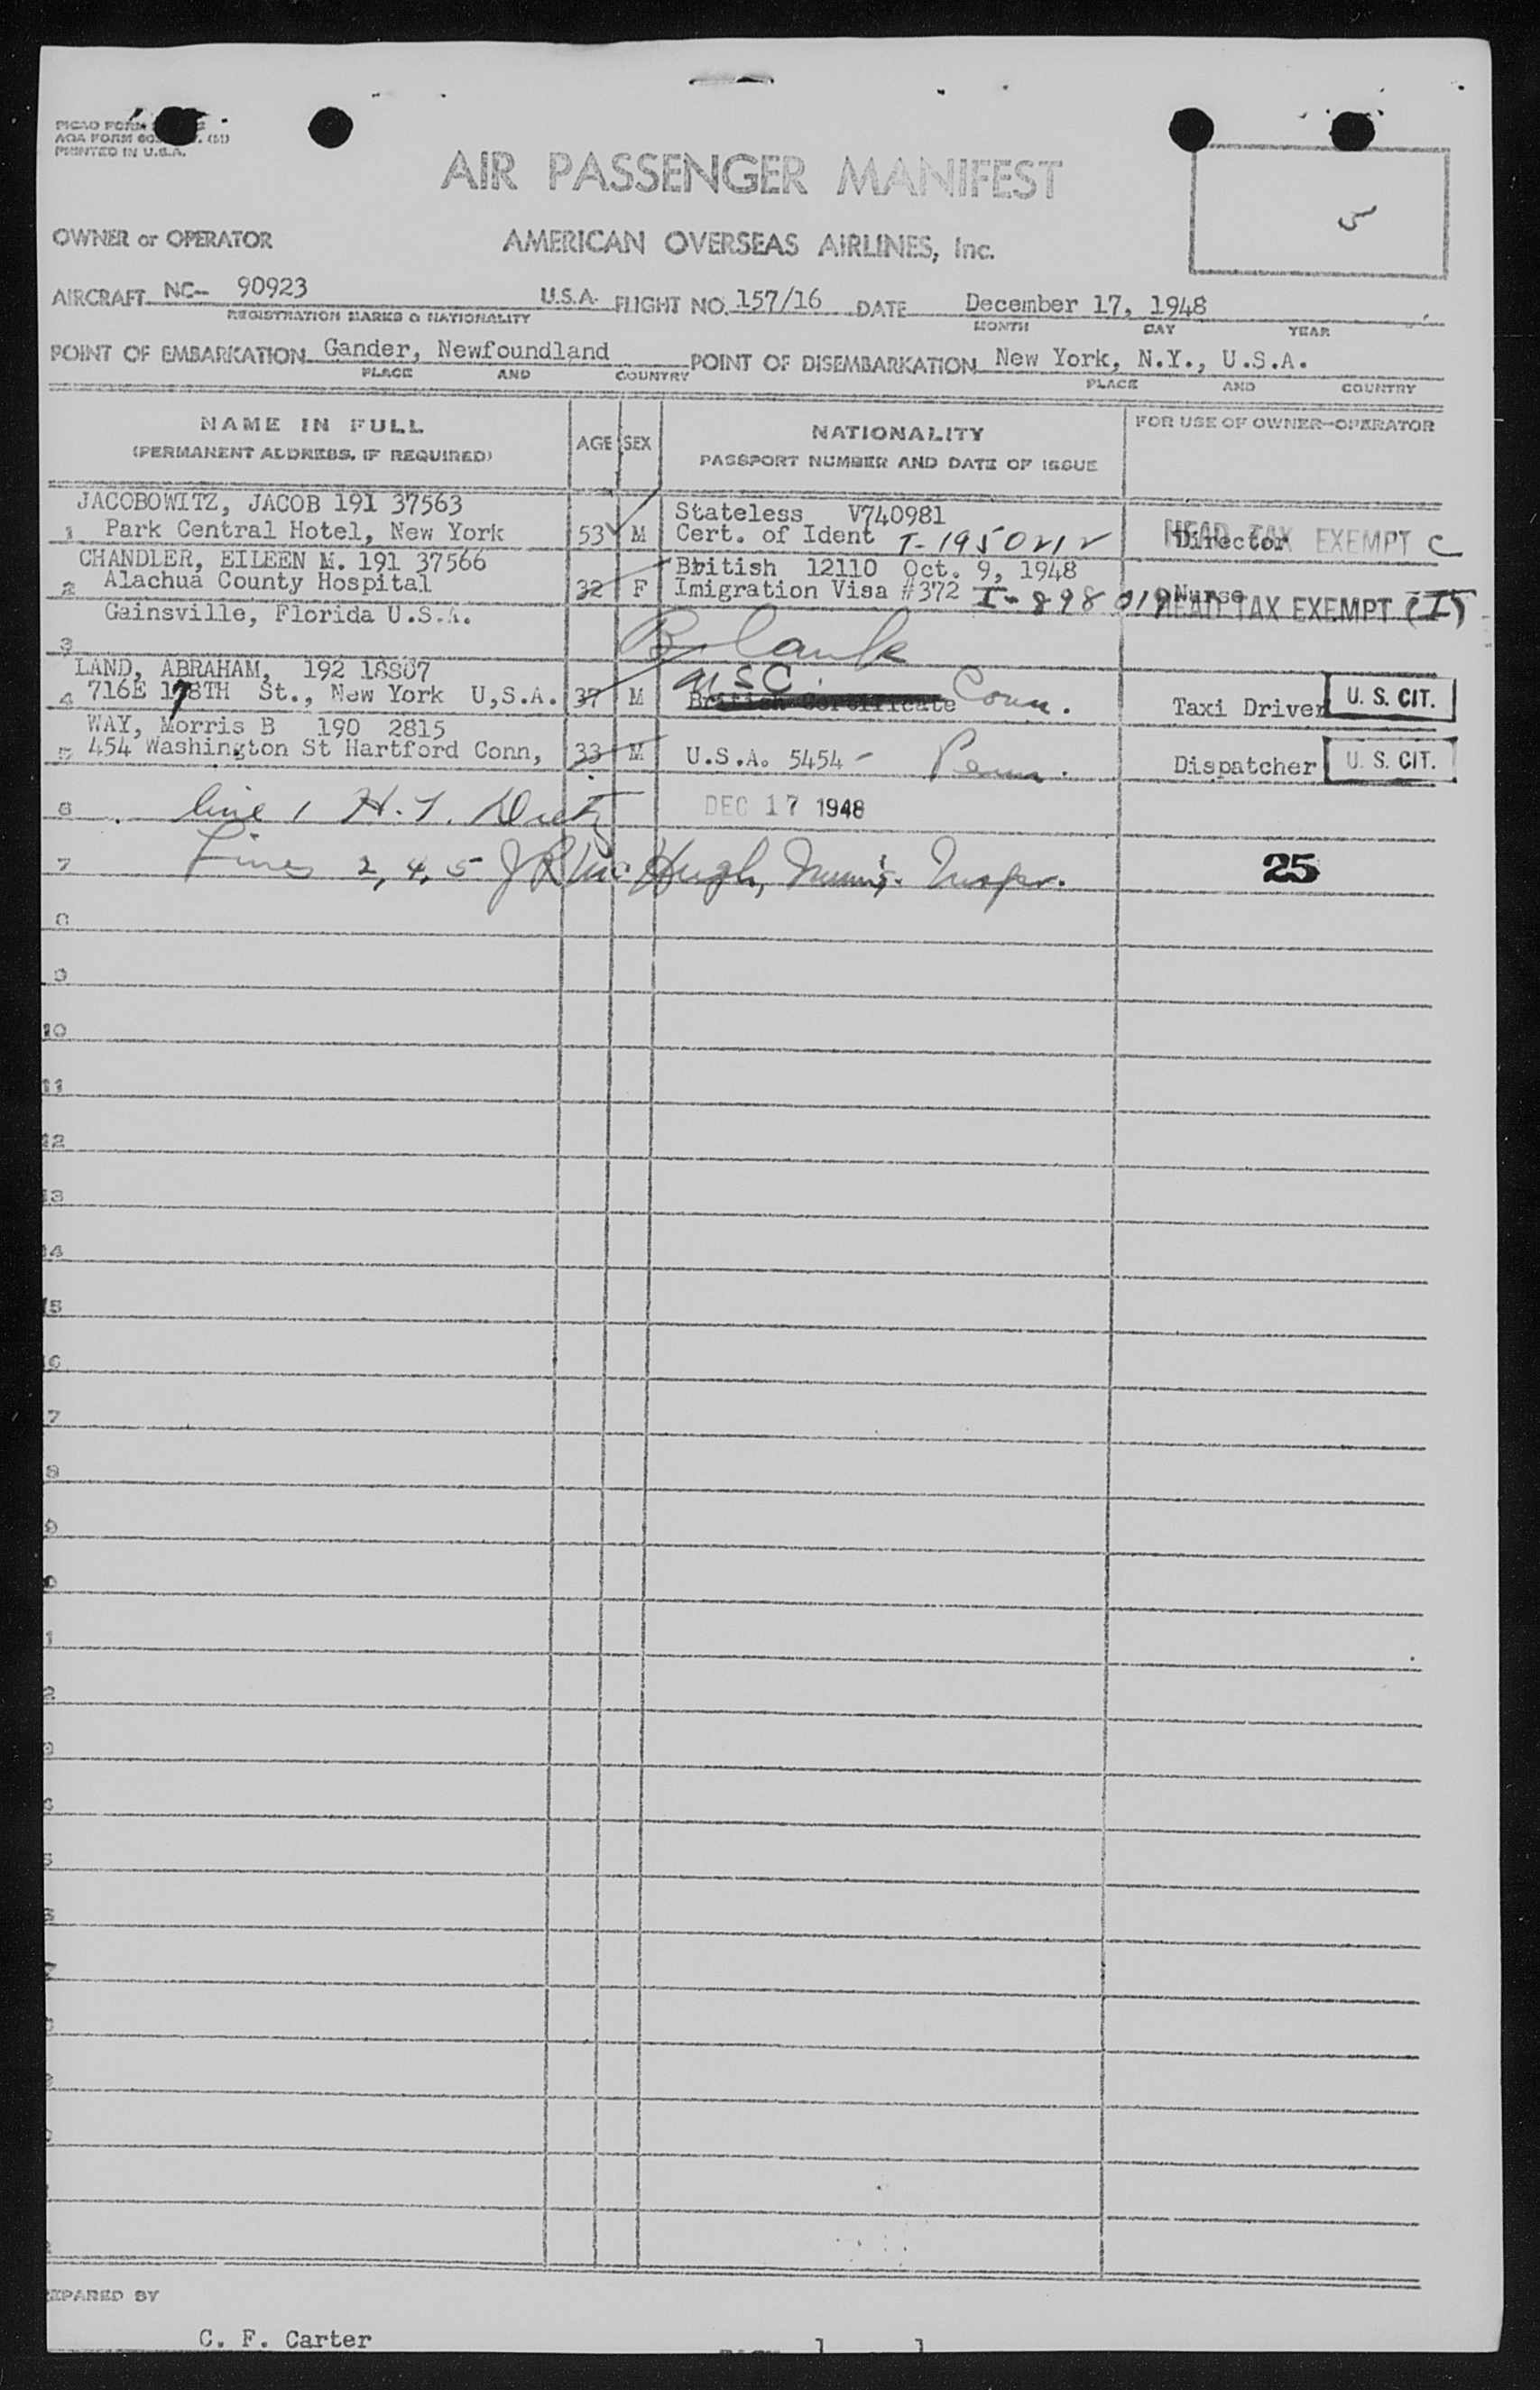 PICAO FORM
AOA FORM
PRINTED IN U.S.A.
AIR PASSENGER MANIFEST
5
OWNER or OPERATOR AMERICAN OVERSEAS AIRLINES, Inc.
AIRCRAFT NC- 90923 U.S.A. FLIGHT NO. 157/16 DATE December 17, 1948
REGISTRATION MARKS & NATIONALITY MONTH DAY YEAR
POINT OF EMBARKATION Gander, Newfoundland POINT OF DISEMBARKATION New York, N.Y., U.S.A.
PLACE AND COUNTRY PLACE AND COUNTRY
NAME IN FULL AGE SEX NATIONALITY FOR USE OF OWNER-OPERATOR
(PERMANENT ADDRESS, IF REQUIRED) PASSPORT NUMBER AND DATE OF ISSUE
JACOBOWITZ, JACOB 191 37563 Stateless V740981
1 Park Central Hotel, New York 53 M Cert. of Ident T-1950212 Director HEAD TAX EXEMPT C
CHANDLER, EILEEN M. 191 37566 British 12110 Oct. 9, 1948
2 Alachua County Hospital 32 F Imigration Visa #372 I-898019 Nurse HEAD TAX EXEMPT
Gainsville, Florida U.S.A.
3 Blank
LAND, ABRAHAM, 192 18807 USC.
4 716E 178TH St., New York U,S.A. 37 M British Certificate Conn. Taxi Driver U. S. CIT.
WAY, Morris B 190 2815
5 454 Washington St Hartford Conn, 33 M U.S.A. 5454- Penn. Dispatcher U. S. CIT.
6 line 1 H. T. DEC 17 1948
7 Lines 2, 4, 5 J R McHugh, Immig. Inspr. 25
8
9
10
11
12
13
14
15
6
7
8
9
0
1
2
3
4
5
6
7
EPARED BY
C. F. Carter 1 1